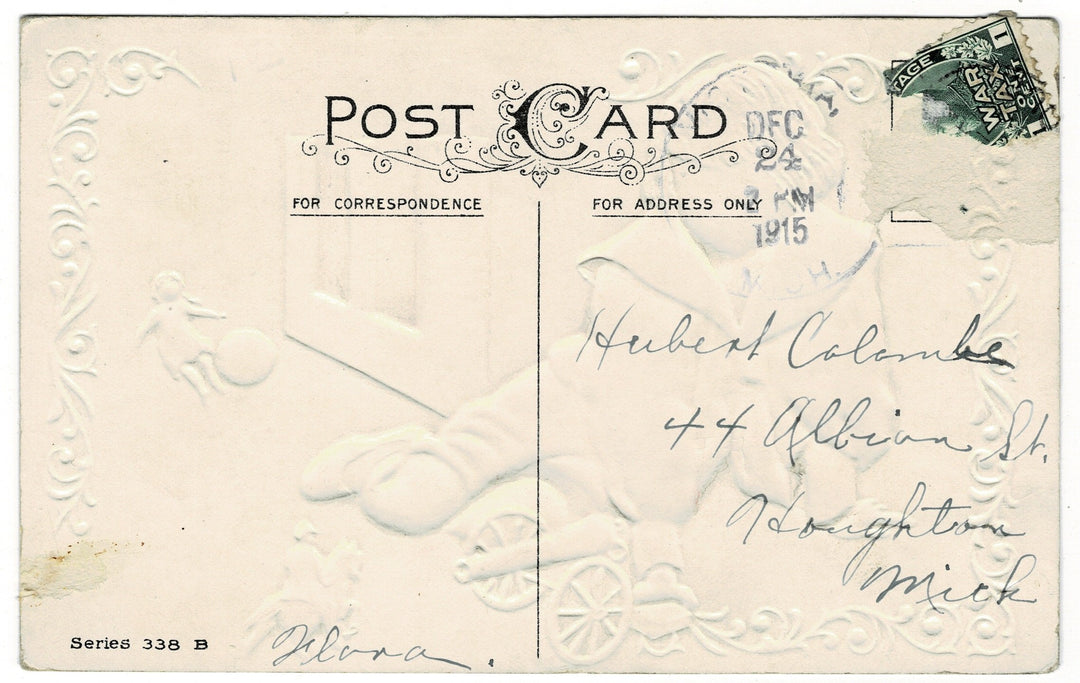 POST CARD
FOR CORRESPONDENCE
FOR ADDRESS ONLY
DEC
24
PM
1915
MICH
TAGE
WAR
TAX
ONE
CENT
1
Hubert Colombe
44 Albion St.
Houghton
Mich
Series 338 B
Flora.